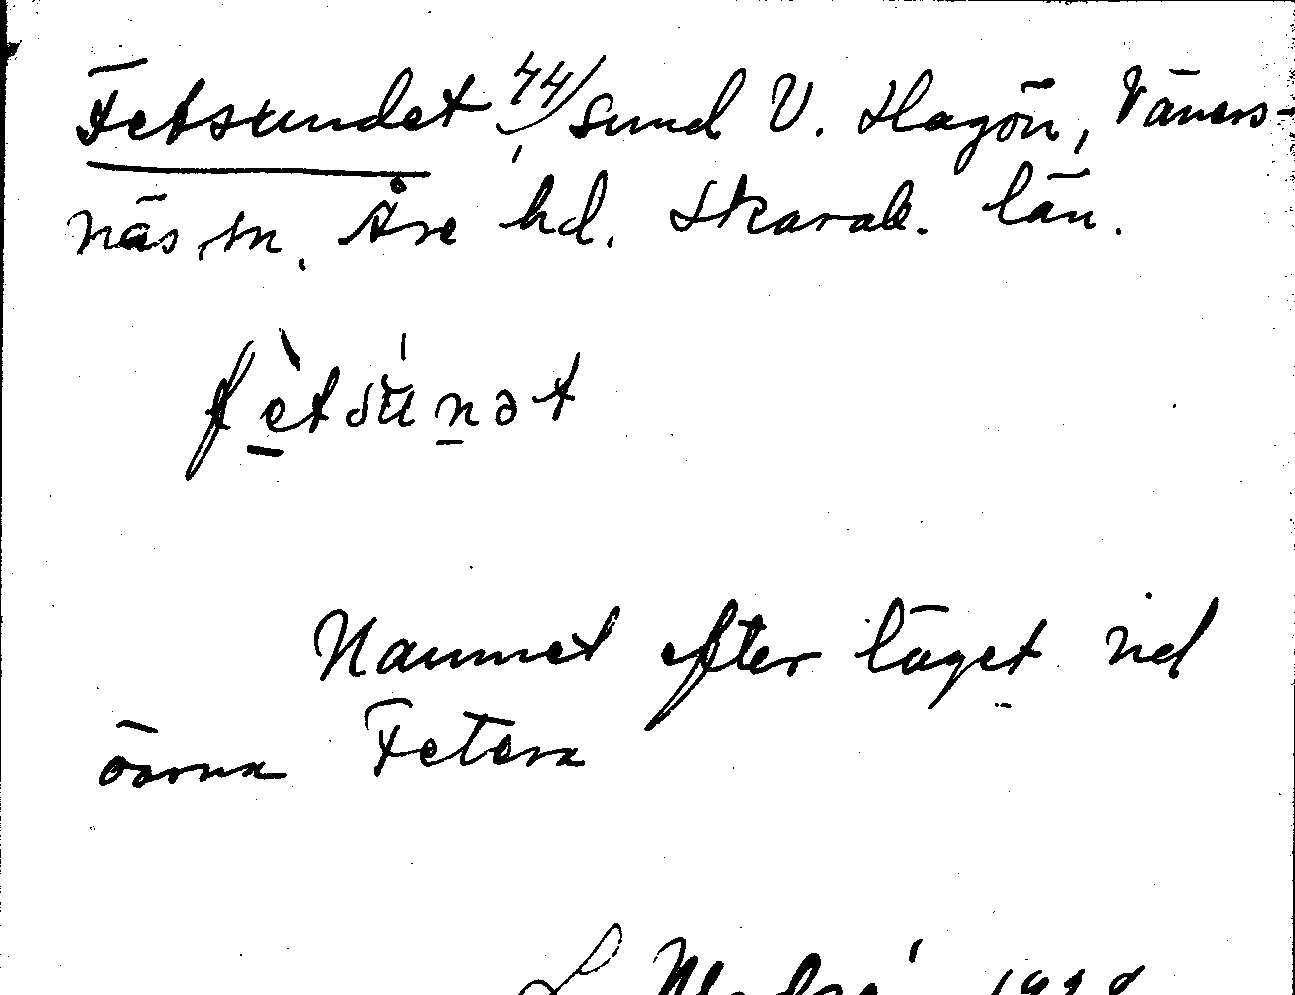 Fetsundet 44/ Sund V. Hagön, Väners-
näs sn. Åse hd. Skarab. län.
fètsúnət
Namnet efter läget vid
öarna Fetera